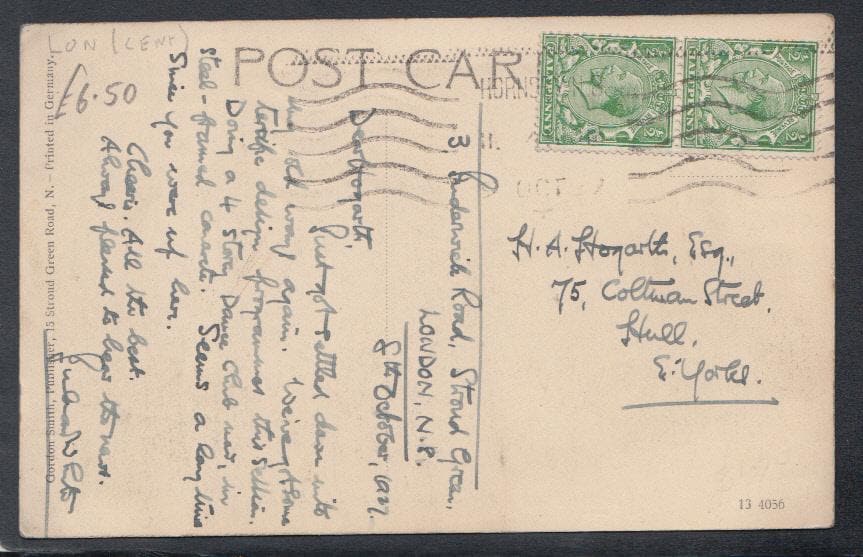 LON (CENT)
£6.50
POST CARD
HORNS
OCT
HALFPENNY
HALFPENNY
Gordon Smith, Publisher, 15 Stroud Green Road, N. — Printed in Germany.
3 Road, Stroud Green,
LONDON, N.8.
8th October, 1927.
Dear Hogarth,
Just got settled down into
the old ways again. We've got some
terrific design programmes this session.
Doing a 4 story Dance Club now, in
Steel-framed concrete. Seems a long time
Since you were up here.
Cheerio. All the best.
Always pleased to hear the news.
H. A. Hogarth, Esq.,
75, Coltman Street,
Hull.
E. Yorks.
13 4056